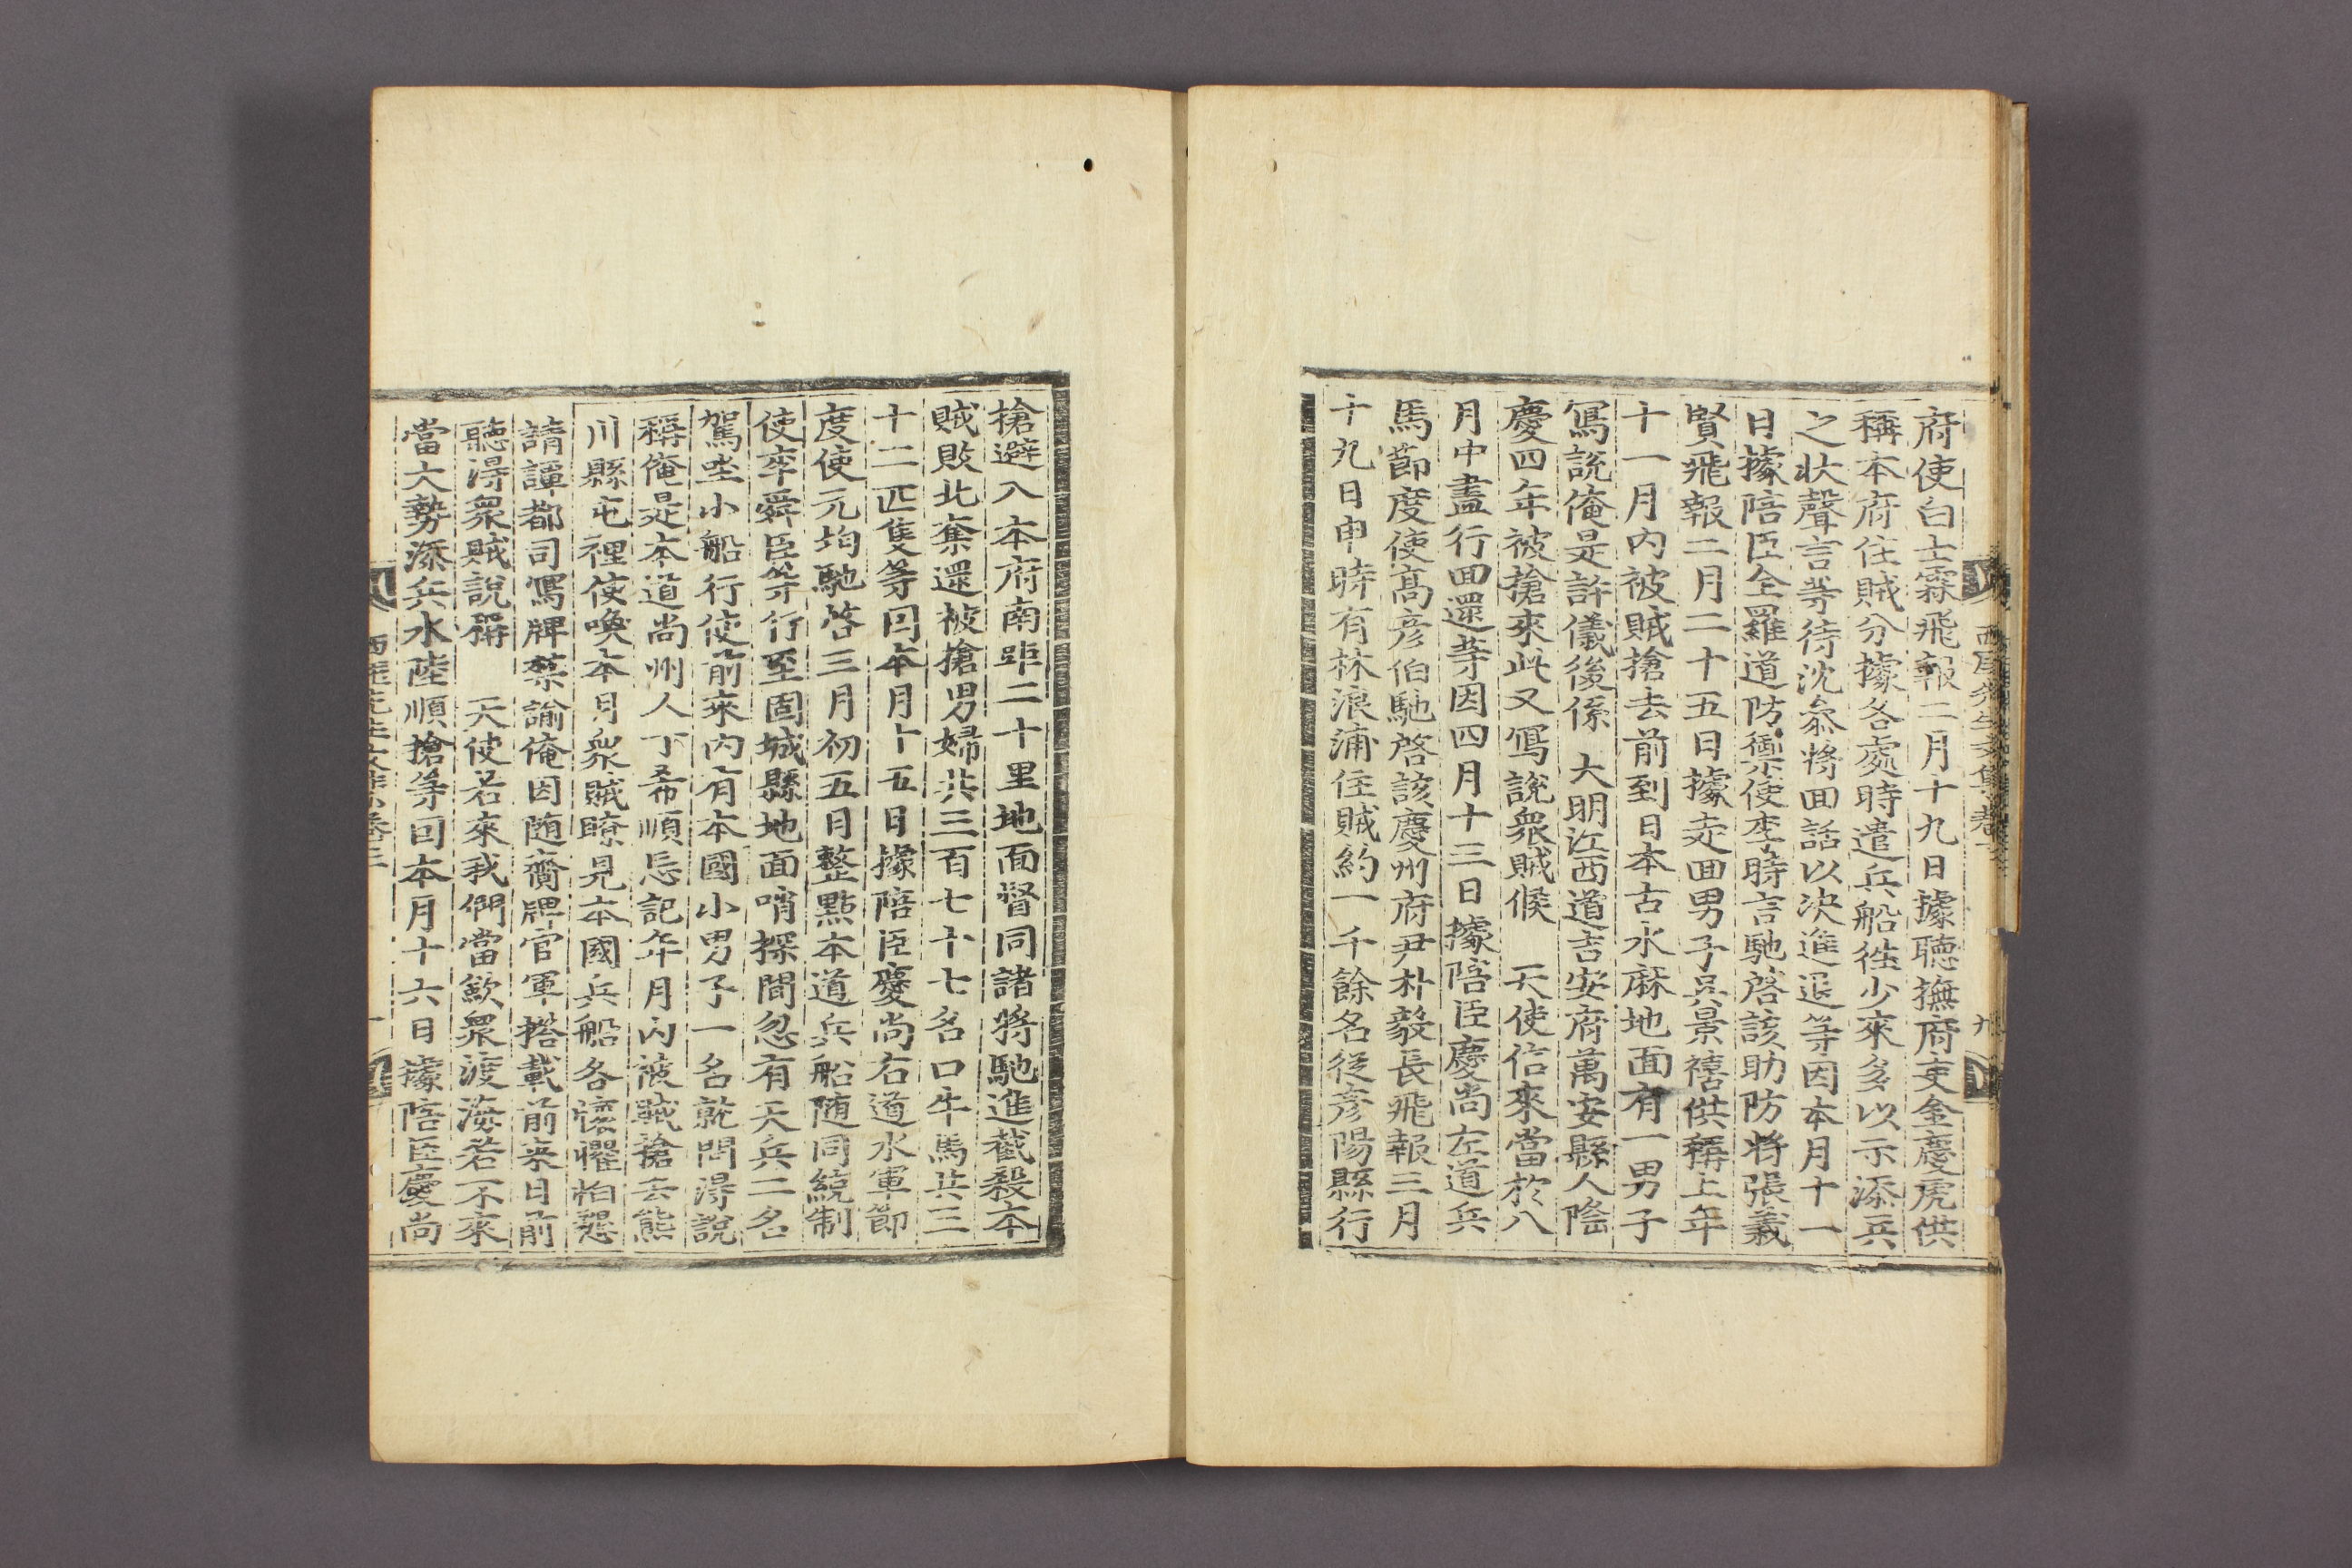 府使白士霖飛報二月十九日據聽撫府吏金慶虎供
稱本府住賊分據各處時遣兵船徃少來多以示添兵
之狀聲言等待沈叅將回話以决進退等因本月十一
日據陪臣全羅道防禦使李時言馳啓該助防將張義
賢飛報二月二十五日據走回男子吳景禧供稱上年
十一月內被賊搶去前到日本古水麻地面有一男子
寫說俺是許儀後係 大明江西道吉安府萬安縣人隆
慶四年被搶來此又寫說衆賊候 天使信來當於八
月中盡行回還等因四月十三日據陪臣慶尚左道兵
馬節度使高彦伯馳啓該慶州府尹朴毅長飛報三月
十九日申時有林浪浦住賊約一千餘名從彦陽縣行
西厓先生文集卷
搶避入本府南距二十里地面督同諸將馳進截殺本
賊敗北奪還被搶男婦共三百七十七名口牛馬共三
十二匹隻等因本月十五日據陪臣慶尚右道水軍節
度使元均馳啓三月初五日整點本道兵船随同統制
使李舜臣等行至固城縣地面哨探間忽有天兵二名
駕坐小船行使前來內有本國小男子一名就問得說
稱俺是本道尚州人丁希順忘記年月內被賊搶去熊
川縣屯裡使喚本月衆賊瞭見本國兵船各懷懼怕懇
請譚都司寫牌禁諭俺因随賫牌官軍搭載前来日前
聽得衆賊說稱 天使若來我們當歛衆渡海若不來
當大勢添兵水陸順搶等因本月十六日據陪臣慶尚